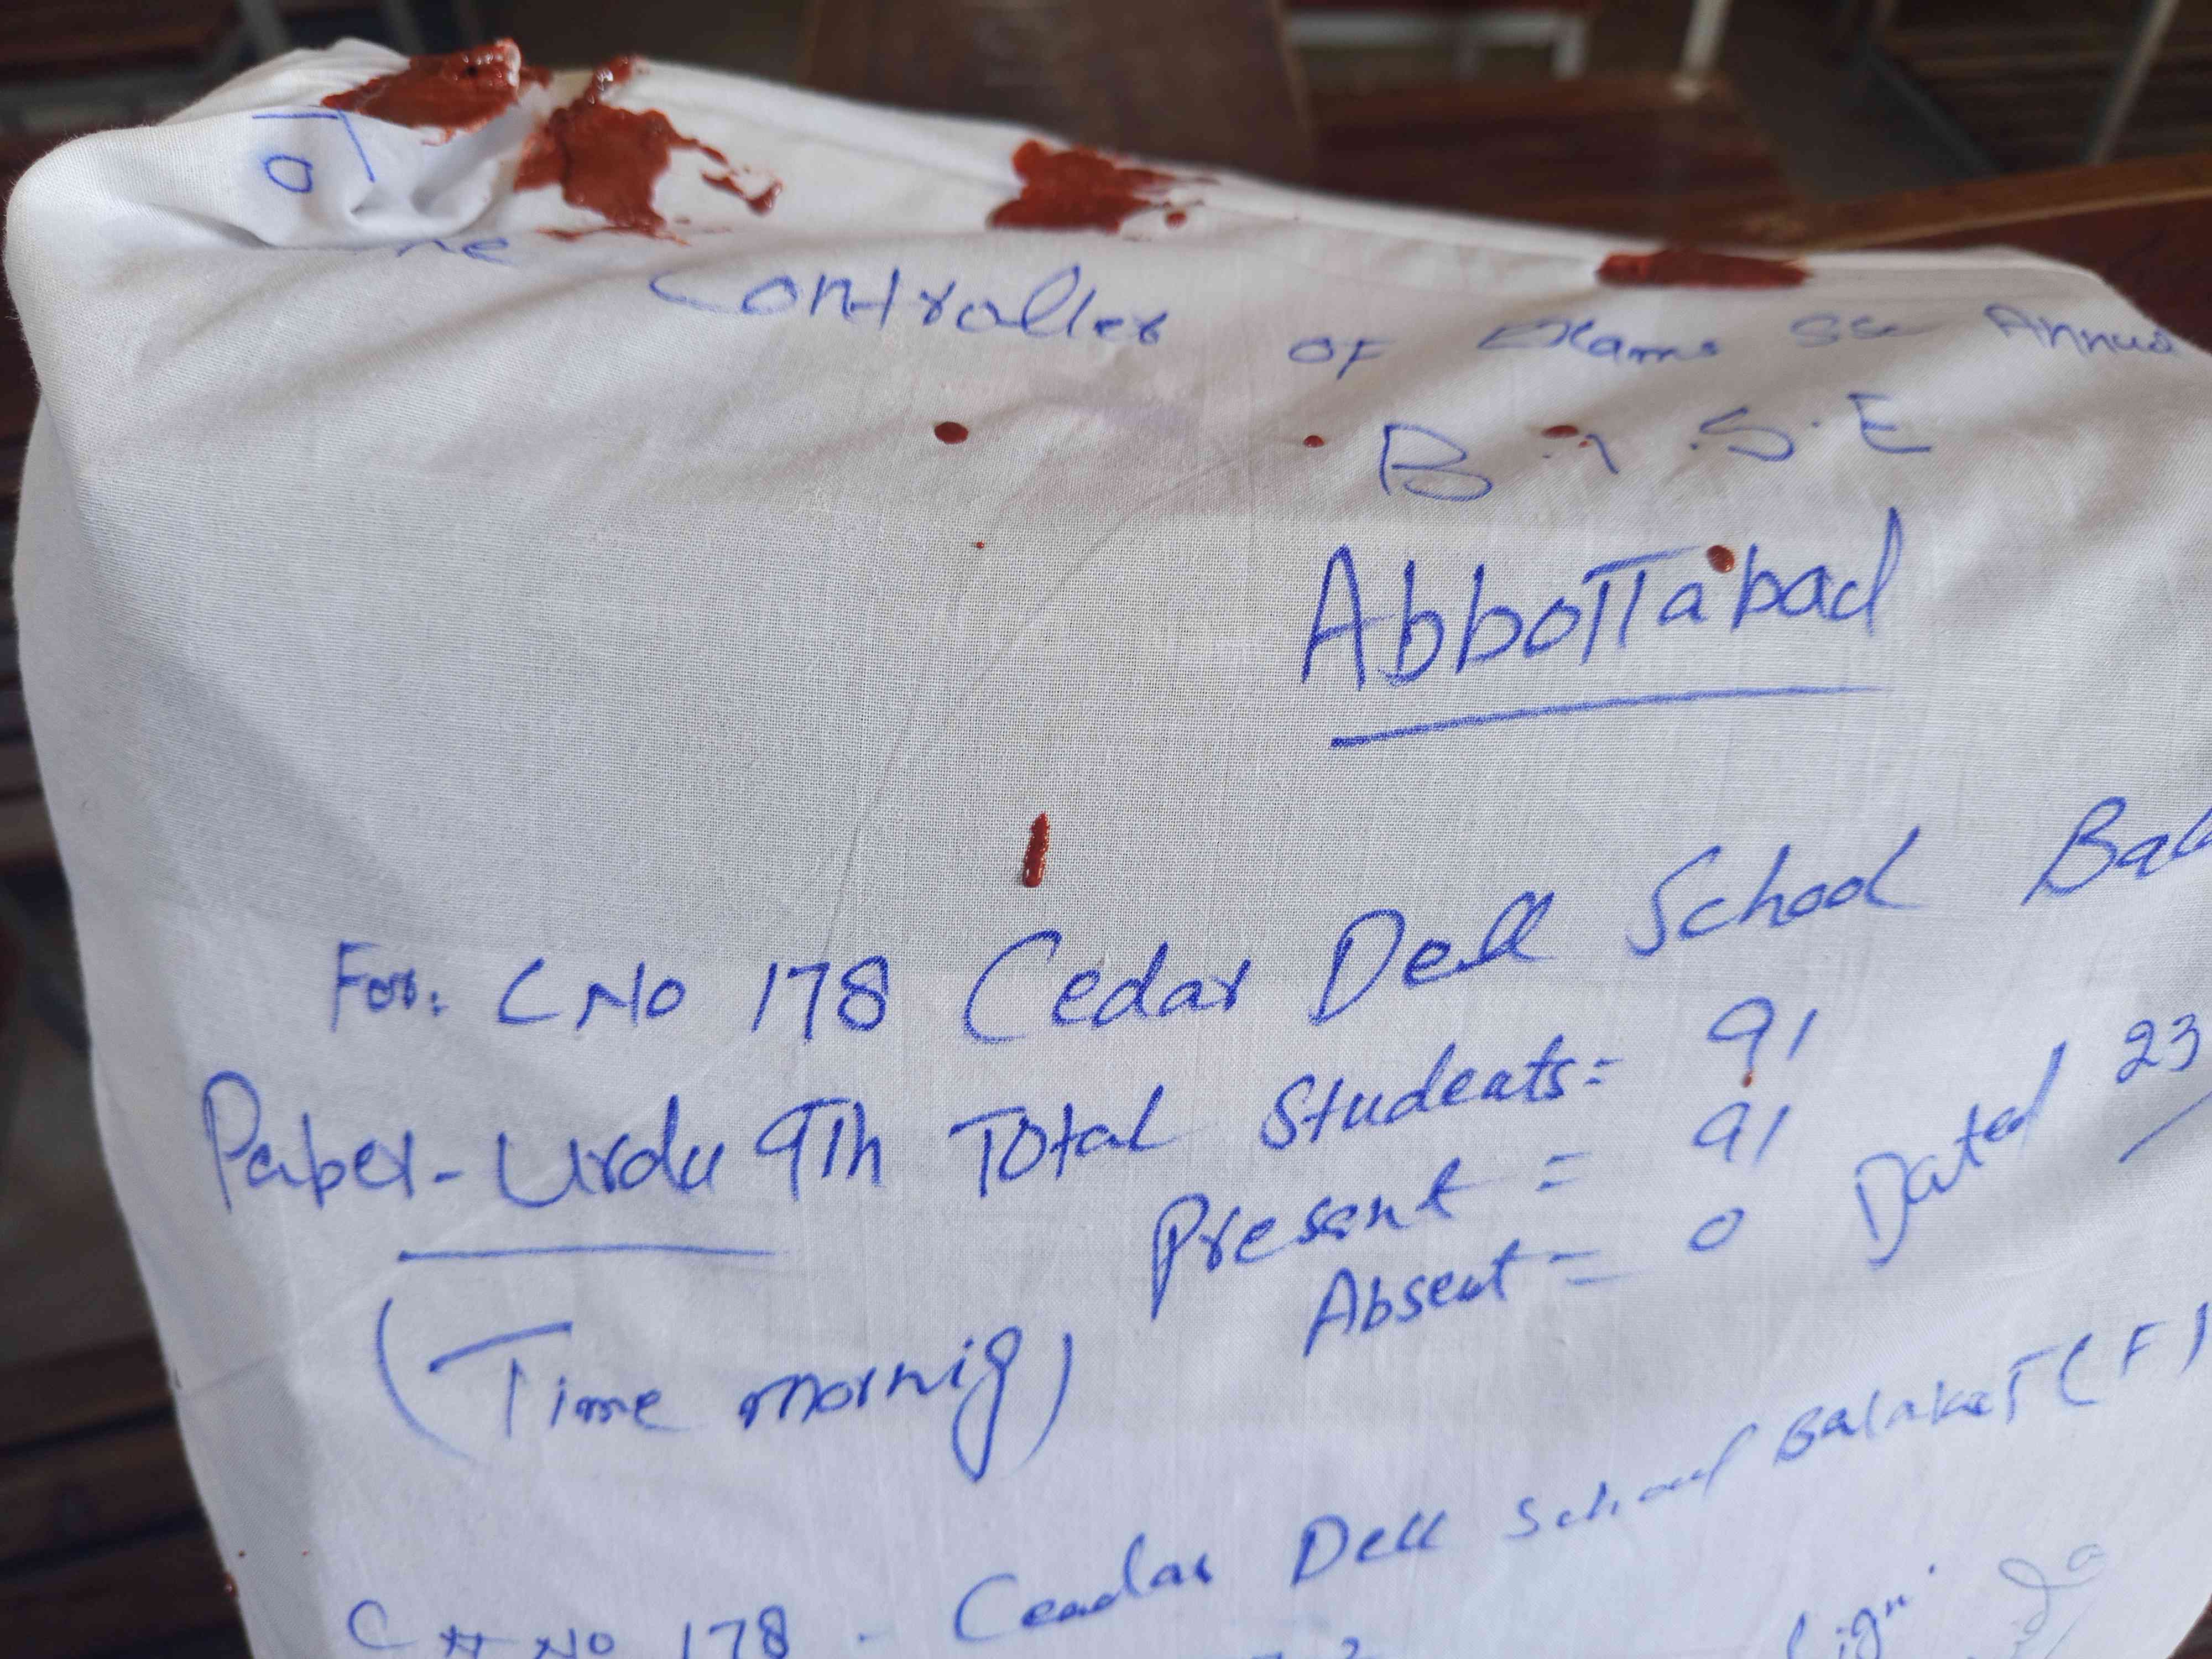 To
The Controller of Exams SSC Annual
B.I.S.E
Abbottabad
For: C No 178 Cedar Dell School
Paper- Urdu 9Th Total Students= 91
Present = 91
Absent = 0 Dated 23
(Time mornig)
C # No 178 - Ceadar Dell School Balakot (F)
Sign: